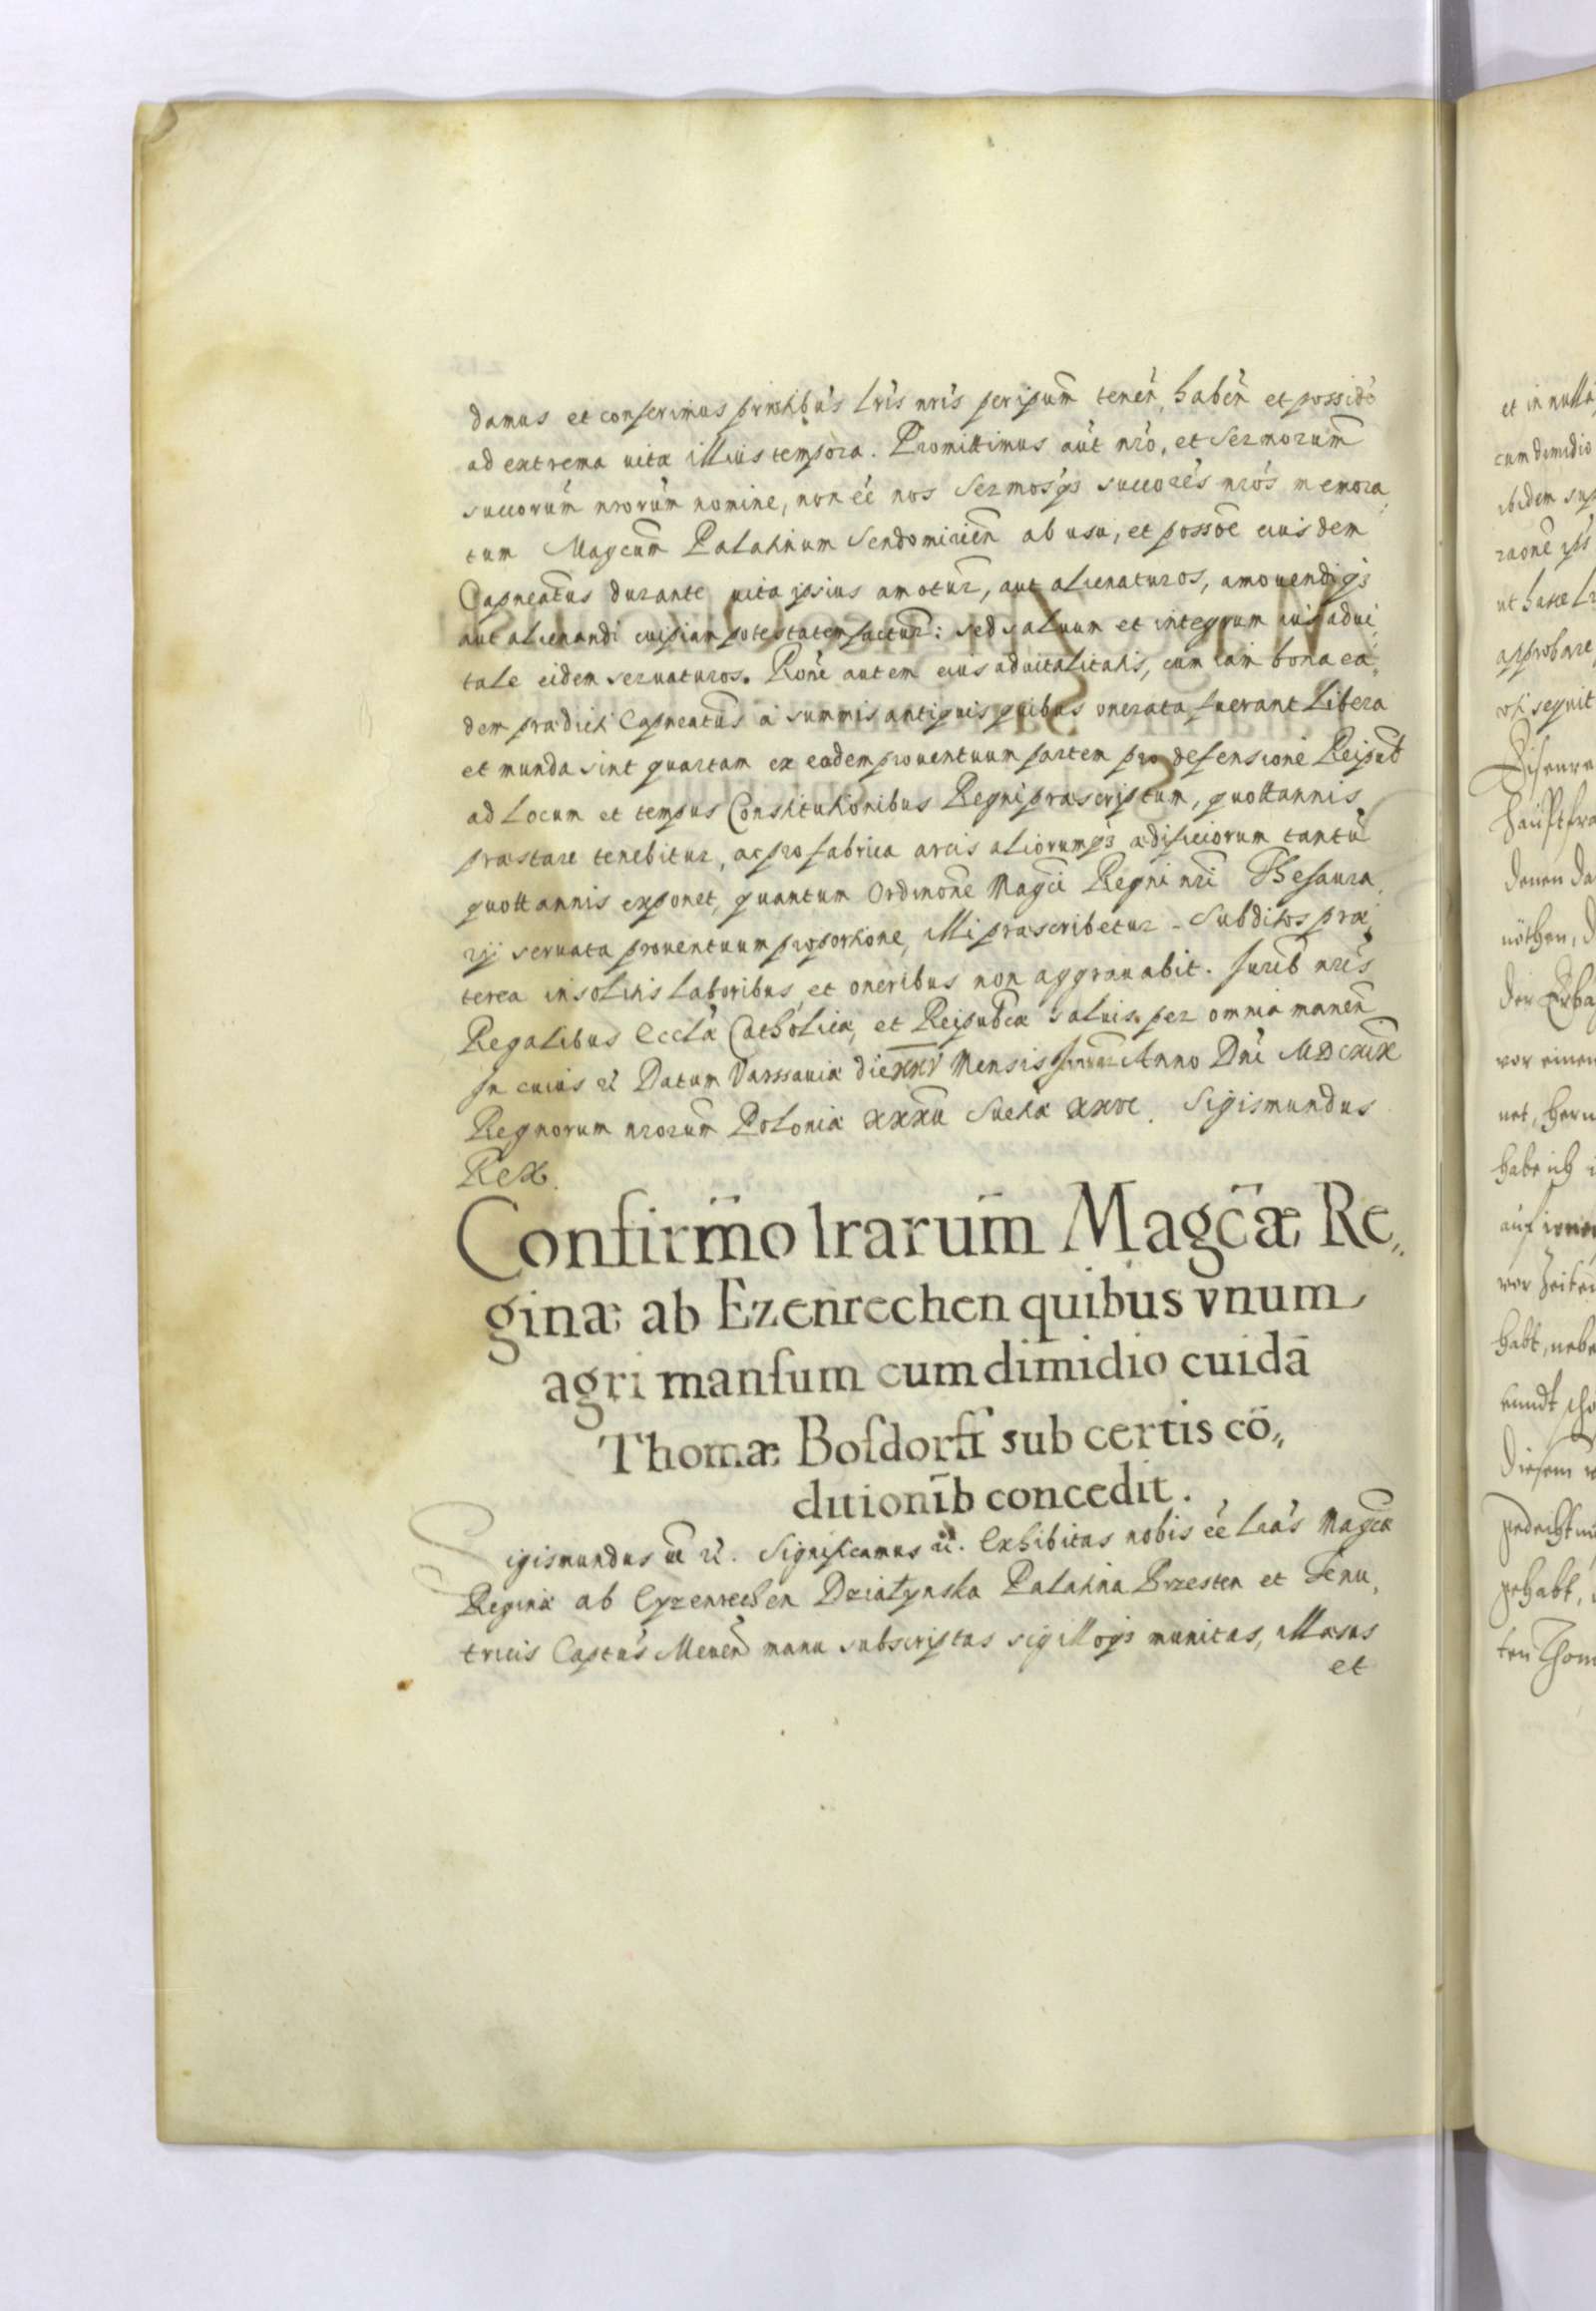 damus et conferimus prńtibús Lrís nrís per ipsum̃ tenéń, habéń et possidé
ad extrema uitæ illius tempora. Promittimus aút nró, et Sermorum̃
succorúm nrorúm nomine, non éé nos Sermosq́ʒ succorés nrós memora,
tum Magcum̃ Palatinum Sendomirień ab usu, et possoẽ eius dem
Capneatũs durante uita ipsius amotur̃, aut alienaturos, amouendiq́ʒ
aut alienandi cuipiam potestatem factur̃: sed saluum et integrum ius adui,
tale eidem seruaturos. Roné autem eius aduitalitatis, cum iam bona ea,
dem prædicti Capneatũs á summis antiquis quibus onerata fuerant Libera
et munda sint quartam ex eadem prouentuum partem pro defensione Reipub̃
ad Locum et tempus Constitutionibus Regni præscriptum, quottannis
præstare tenebitur, ac pro fabrica arcis aliorumq́ʒ ædificiorum tantú
quottannis exponet, quantum Ordinoñe Magci̇̃ Regni nrí Thesaura,
rij seruata prouentuum proportione, illi præscribetur. Subditos præ,
terea insolitis laboribus et oneribus non aggrauabit. Jurib̃ nrís
Regalibus Ecclǽ Catholicæ, et Reipub̃cæ saluis per omnia maneñ
In cuius ꝛć Datum Varssauiæ die XXV Mensis Anno Dní MDCXIX
Regnorum nrorum̃ Poloniæ XXXII Suetiæ XXVI. Sigismundus
Rex.
Confirm̃o lrarum̃ Magc̃æ Re,,
ginæ ab Ezenrechen quibus vnum
agri manſum cum dimidio cuidã
Thomæ Boſdorff sub certis cõ,,
ditionĩb concedit.
Sigismundus ꝛć ꝛć. Significamus ꝛć. Exhibitas nobis éé Lrás Magcæ̃
Reginæ ab Eyzenrechen Działynska Palatina Brzesten et Tenu,
tricis Captús Meueñ manu subscriptas sigilloq́ʒ munitas, illæsas
et
et in nulla
cum dimidio
ibidem sup
raoné ips
ut hasce Lr
approbare
ti sequit
denen da
nöthen, d
vor einen
habe ich
vor Zeiten
habt, nebe
diesem
gehabt,
ten Thom